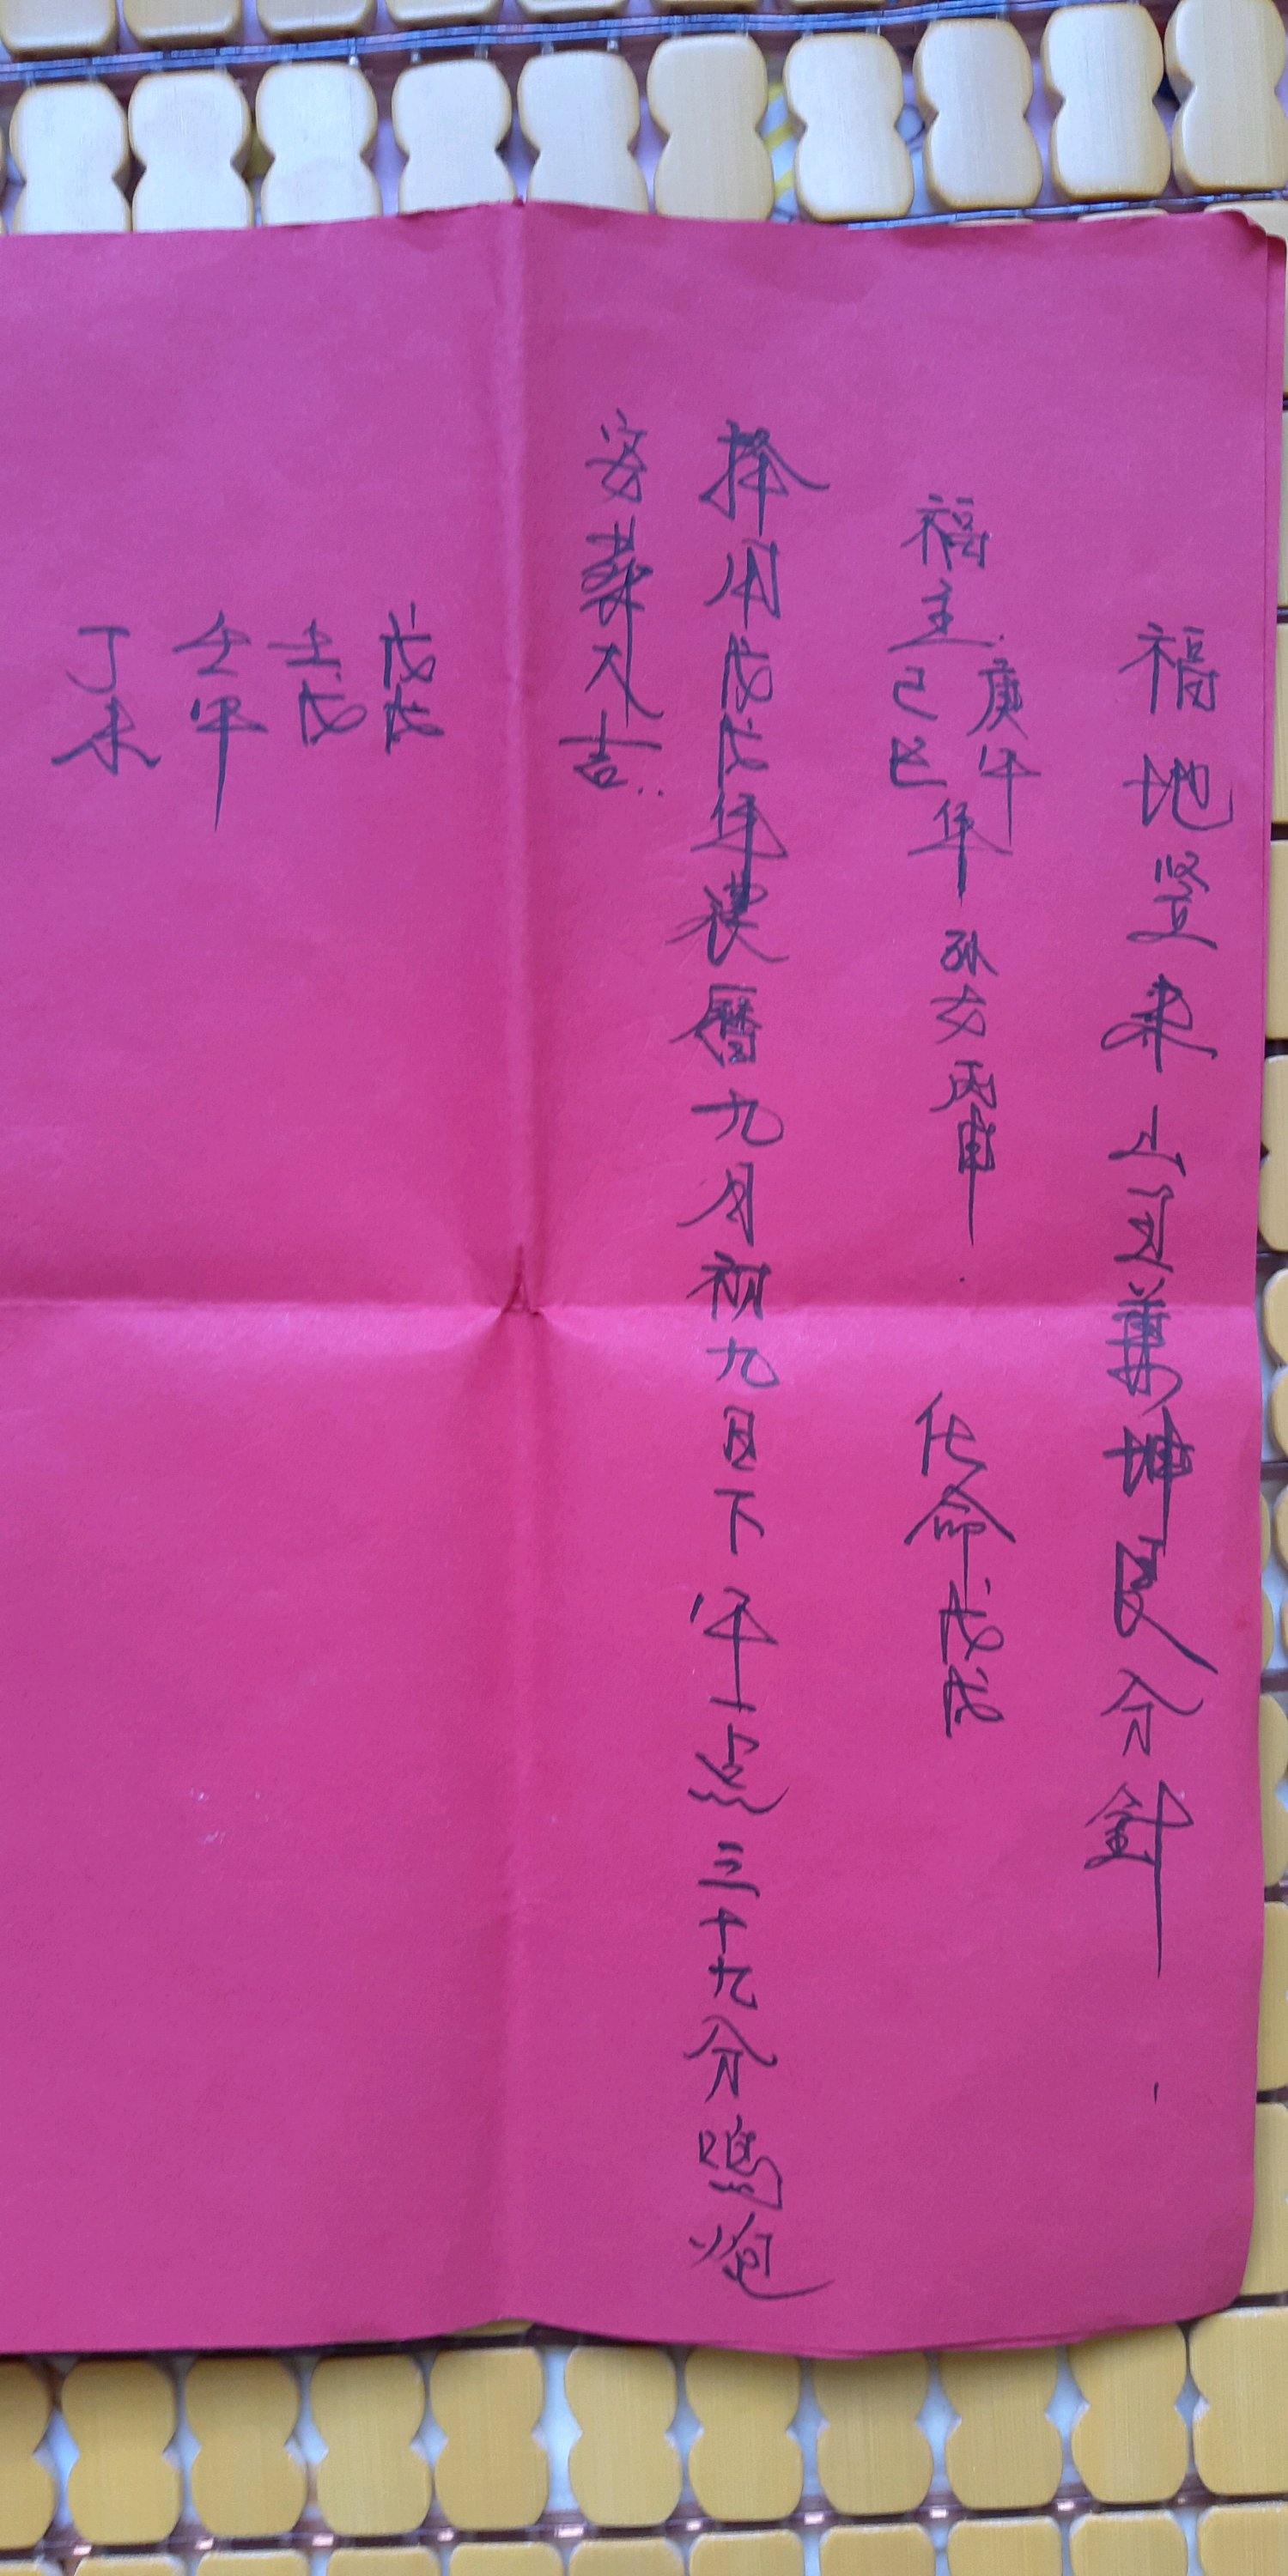 福地竖未山丑兼坤艮分針
福主庚午己巳年 孙女丙申 化命戊戌
择用戊戌年农曆九月初九日下午一点三十九分鳴炮
安葬大吉
戊戌
壬戌
壬午
丁未